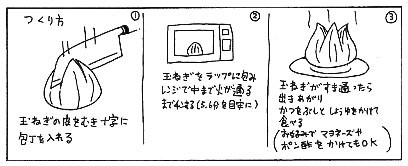 つくり方
①
玉ねぎの皮をむき十字に
包丁を入れる
②
玉ねぎをラップに包み
レンジで中まで火が通る
まで加熱(5.6分を目安に)
③
玉ねぎがすき通ったら
出き上がり
かつをぶしとしょうゆをかけて
食べる
(お好みでマヨネーズや
ポン酢をかけてもOK)